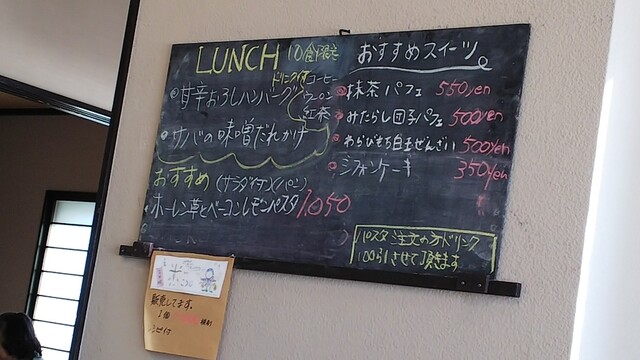 LUNCH 10食限定
ドリンク付 コーヒー
ウーロン
紅茶
甘辛おろしハンバーグ
サバの味噌だれかけ
おすすめ (サラダ付)(パン)
ホーレン草とベーコンレモンパスタ 1,050
おすすめスイーツ。
抹茶パフェ 550yen
みたらし団子パフェ 500yen
わらびもち白玉ぜんざい 500yen
シフォンケーキ 350yen
パスタ注文の方ドリンク
100引させて頂きます
販売してます。
1個